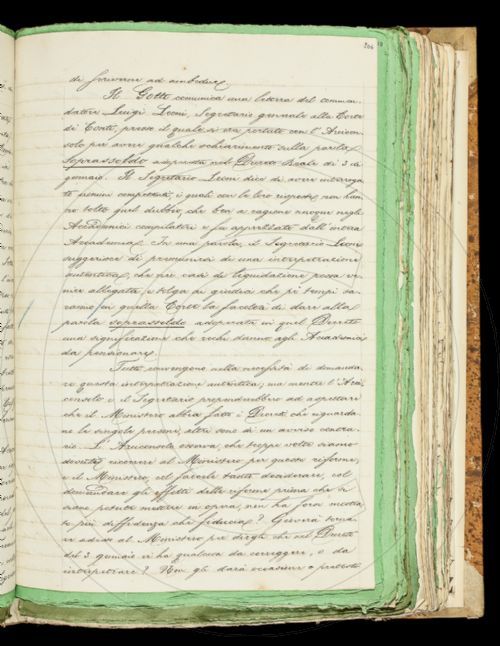 206
di scrivere ad ambedue.
Il Gotti comunica una lettera del commen-
datore Luigi Leoni, Segretario generale alla Corte
di Conti, presso il quale si era portato con l'Arcicon-
solo per avere qualche schiarimento sulla parola
Soprassoldo adoprata nel Decreto Reale di 3 di
gennaio. Il Segretario Leoni dice di avere interroga-
to persone competenti, i quali con le loro risposte non han-
no tolto quel dubbio, che ben a ragione nacque negli
Accademici compilatori e fu apprezzato dall'intera
Accademia. In una parola, il Segretario Leoni
suggerisce di premunirsi di una interpretazione
autentica, che pei casi di liquidazione possa ve-
nire allegata, e tolga ai giudici che pe' tempi sa-
ranno in quella Corte la facoltà di dare alla
parola soprassoldo adoperata in quel Decreto
una significazione che rechi danno agli Accademici
da pensionare.
Tutti convengono nella necessità di domanda-
re questa interpretazione autentica; ma mentre l'Arci-
consolo e il Segretario propenderebbero ad aspettare
che il Ministero abbia fatti i Decreti che riguarda-
no le singole persone, altri sono di un avviso contra-
rio. L'Arciconsolo osserva, che troppe volte siamo
dovuti ricorrere al Ministero per queste riforme,
e il Ministero, col farcele tanto desiderare, col
domandare gli effetti delle riforme prima che si
siano potute mettere in opera, non ha fora mostra-
to più diffidenza che fiducia? Gioverà torna-
re adesso al Ministero per dirgli che nel Decreto
del 3 gennaio vi ha qualcosa da correggere, o da
interpretare? Non gli darà occasione o pretesto